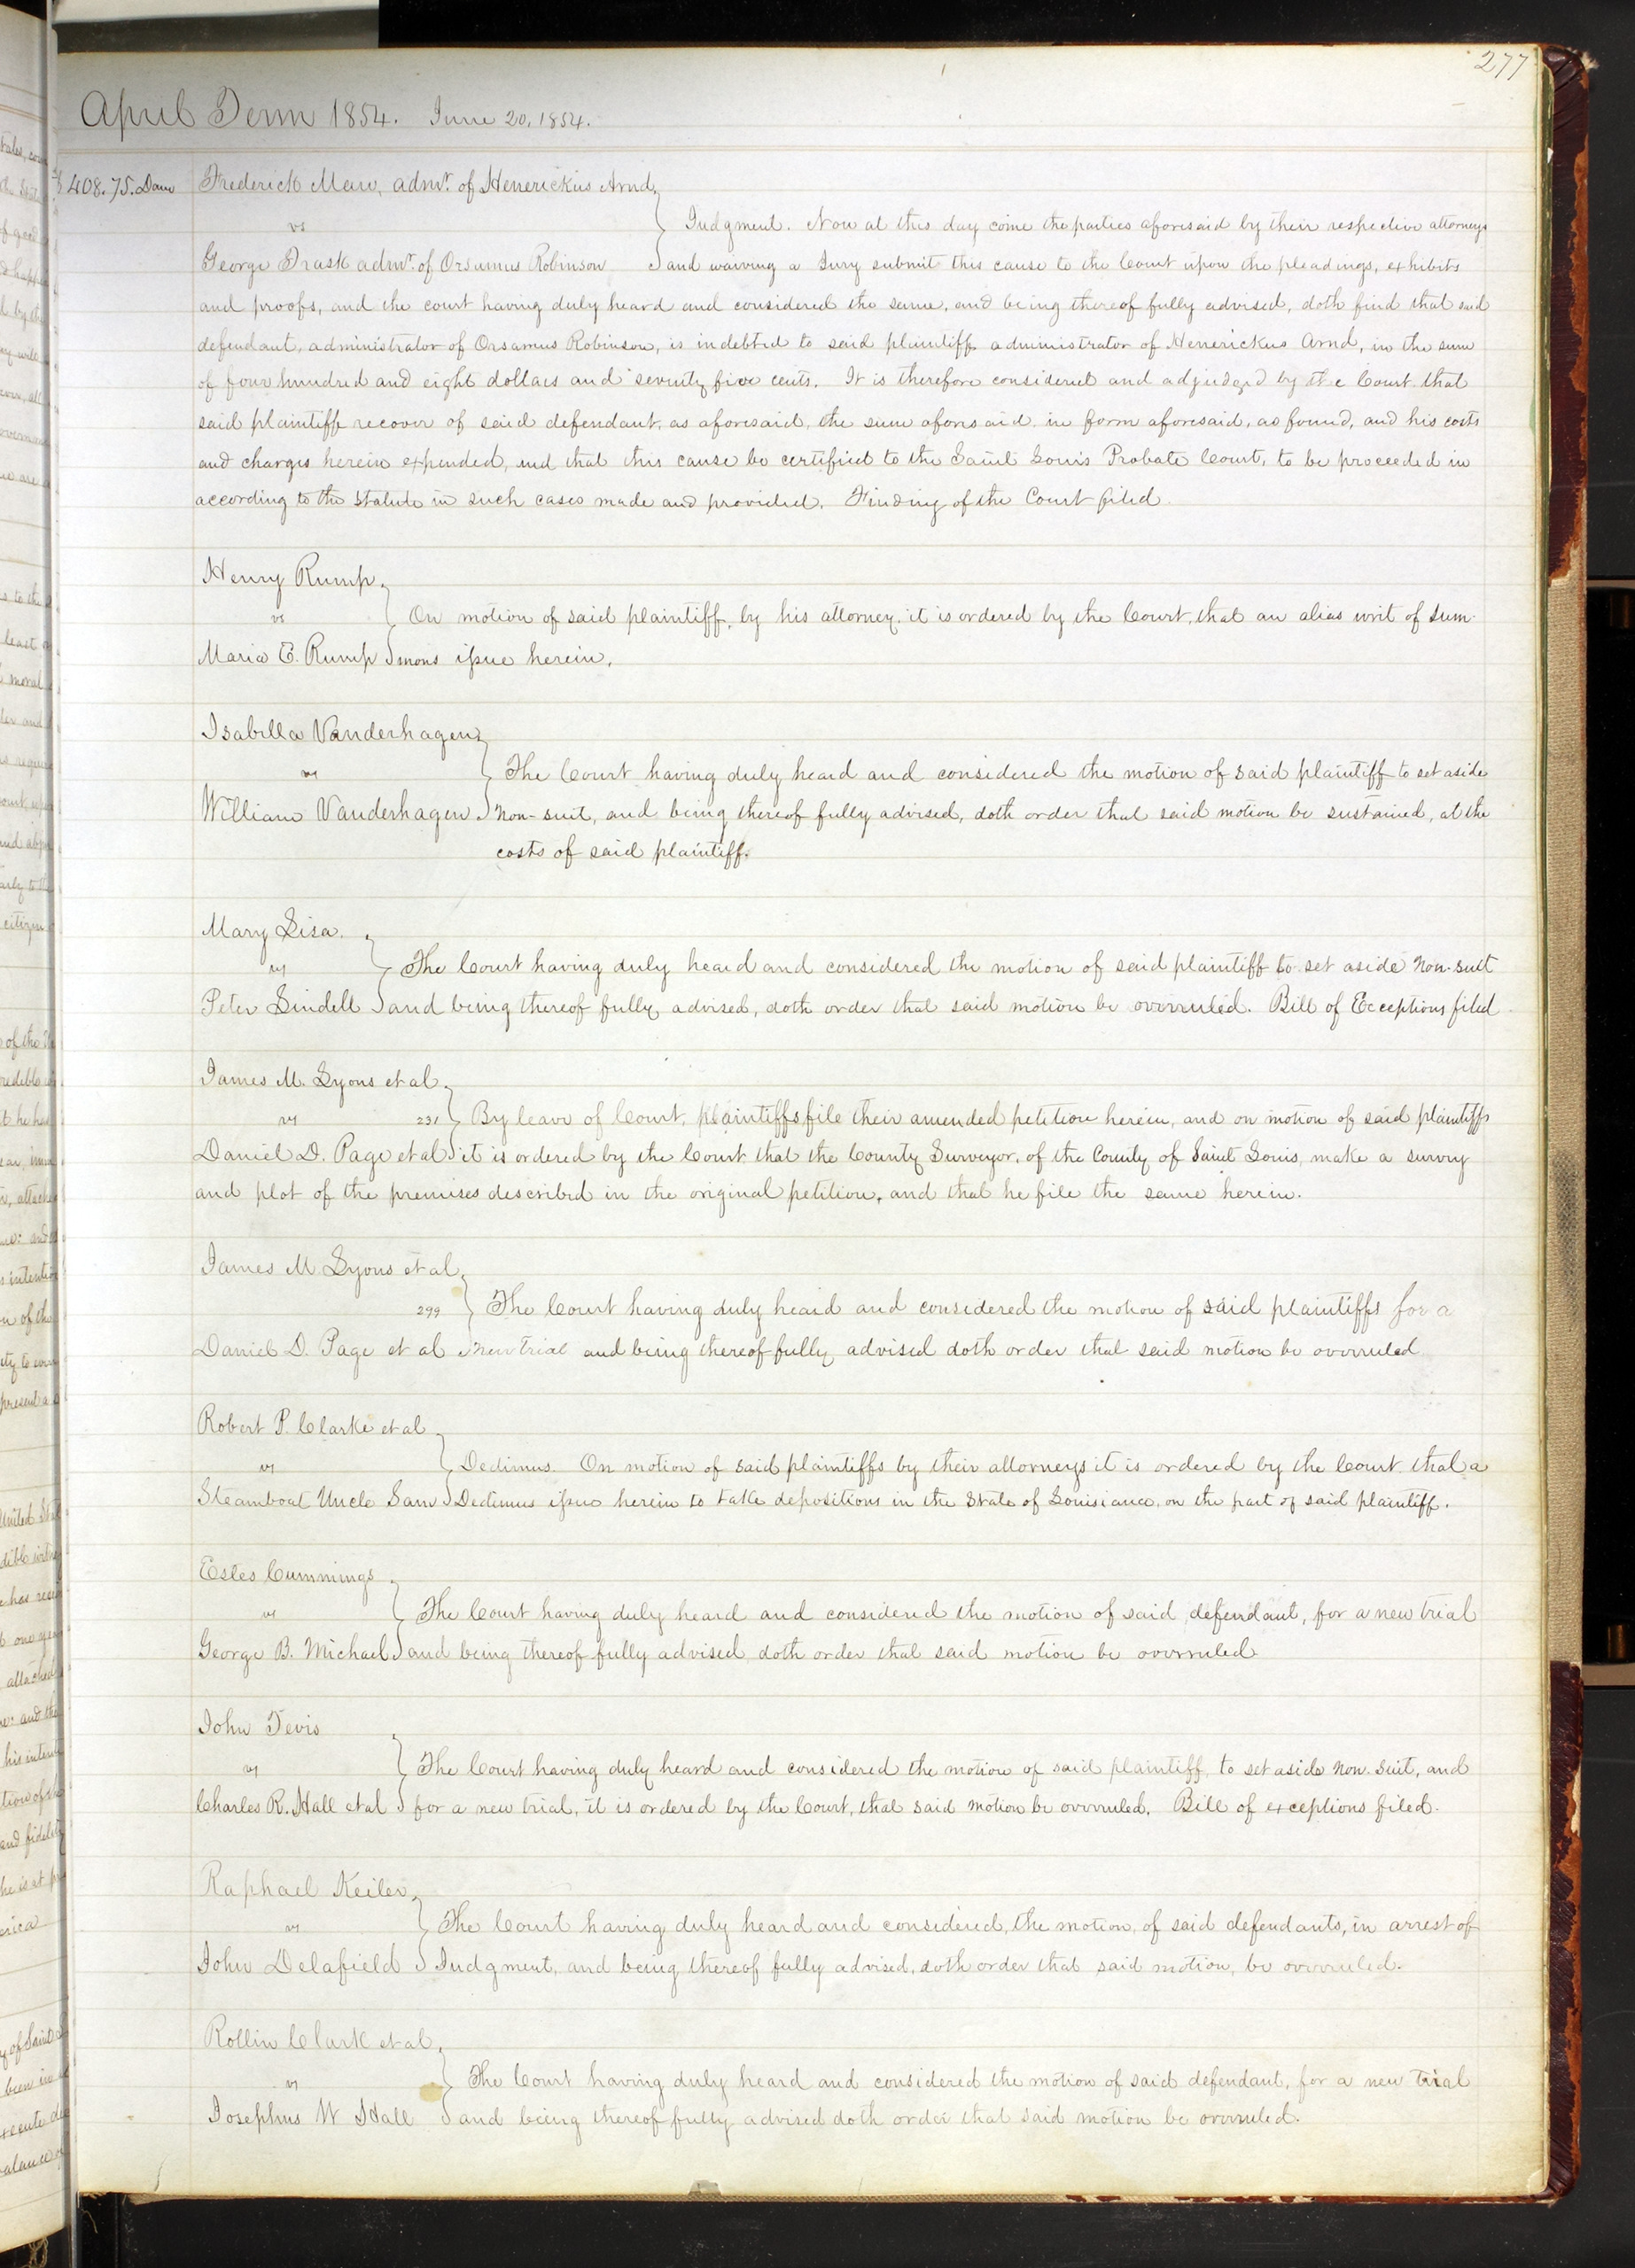 277
April Term 1854. June 20, 1854.
$408.75. Dam Frederick Maw, admr. of Henerickus Arnd,
vs
Judgment. Now at this day come the parties aforesaid by their respective attorneys
George Trask admr. of Orsamus Robinson and waiving a Jury submit this cause to the Court upon the pleadings, exhibits
and proofs, and the court having duly heard and considered the same, and being thereof fully advised, doth find that said
defendant, administrator of Orsamus Robinson, is indebted to said plaintiff administrator of Henerickus Arnd, in the sum
of four hundred and eight dollars and seventy five cents. It is therefore considered and adjudged by the Court that
said plaintiff recover of said defendant, as aforesaid, the sum aforesaid in form aforesaid, as found, and his costs
and charges herein expended, and that this cause be certified to the Saint Louis Probate Court, to be proceeded in
according to the Statute in such cases made and provided. Finding of the Court filed.
Henry Rump,
vs On motion of said plaintiff, by his attorney, it is ordered by the Court, that an alias writ of sum-
Maria E. Rump mons issue herein.
Isabella Vanderhagen
vs The Court having duly heard and considered the motion of said plaintiff to set aside
William Vanderhagen Non-suit, and being thereof fully advised, doth order that said motion be sustained, at the
costs of said plaintiff.
Mary Lisa.
vs The Court having duly heard and considered the motion of said plaintiff to set aside Non-suit
Peter Lindell and being thereof fully advised, doth order that said motion be overruled. Bill of Exceptions filed
James M. Lyons et al
vs 231 By leave of Court, plaintiffs file their amended petition herein, and on motion of said plaintiffs
Daniel D. Page et al it is ordered by the Court that the County Surveyor, of the County of Saint Louis, make a survey
and plot of the premises described in the original petition, and that he file the same herein.
James M. Lyons et al,
299 The Court having duly heard and considered the motion of said plaintiffs for a
Daniel D. Page et al new trial and being thereof fully advised doth order that said motion be overruled
Robert P. Clarke et al
vs Dedimus. On motion of said plaintiffs by their attorneys it is ordered by the Court that a
Steamboat Uncle Sam Dedimus issue herein to take depositions in the State of Louisiana, on the part of said plaintiff.
Estes Cummings
vs The Court having duly heard and considered the motion of said defendant, for a new trial
George B. Michael and being thereof fully advised, doth order that said motion be overruled
John Tevis
vs The Court having duly heard and considered the motion of said plaintiff, to set aside Non. Suit, and
Charles R. Hall et al for a new trial, it is ordered by the Court, that said motion be overruled. Bill of exceptions filed.
Raphael Keiler,
vs The Court having duly heard and considered, the motion, of said defendants, in arrest of
John Delafield Judgment, and being thereof fully advised, doth order that said motion, be overruled.
Rollin Clark et al,
vs The Court having duly heard and considered the motion of said defendant, for a new trial
Josephus W Hall and being thereof fully advised doth order that said motion be overruled.